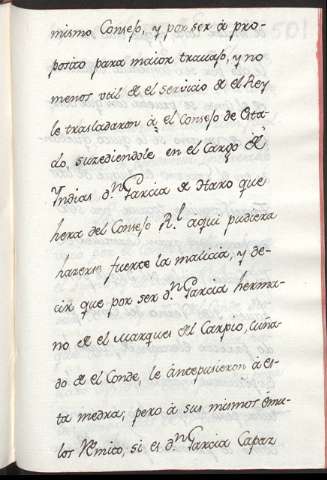 mismo Consejo, y por ser à pro-
posito para maior travajo, y no
menos util de el servicio de el Rey
le trasladaron à el Consejo de Esta-
do, suzediendole en el Cargo de
Yndias dⁿ Garcia de Haro que
hera del Consejo Rˡ aqui pudiera
hazerse fuerte la malicia, y de-
cir que por ser dⁿ Garcia herma-
no de el Marques del Carpio, cuña-
do de el Conde, le antepusieron à es-
ta medra; pero à sus mismos emu-
los Rᵉmito, si es dⁿ Garcia Capaz